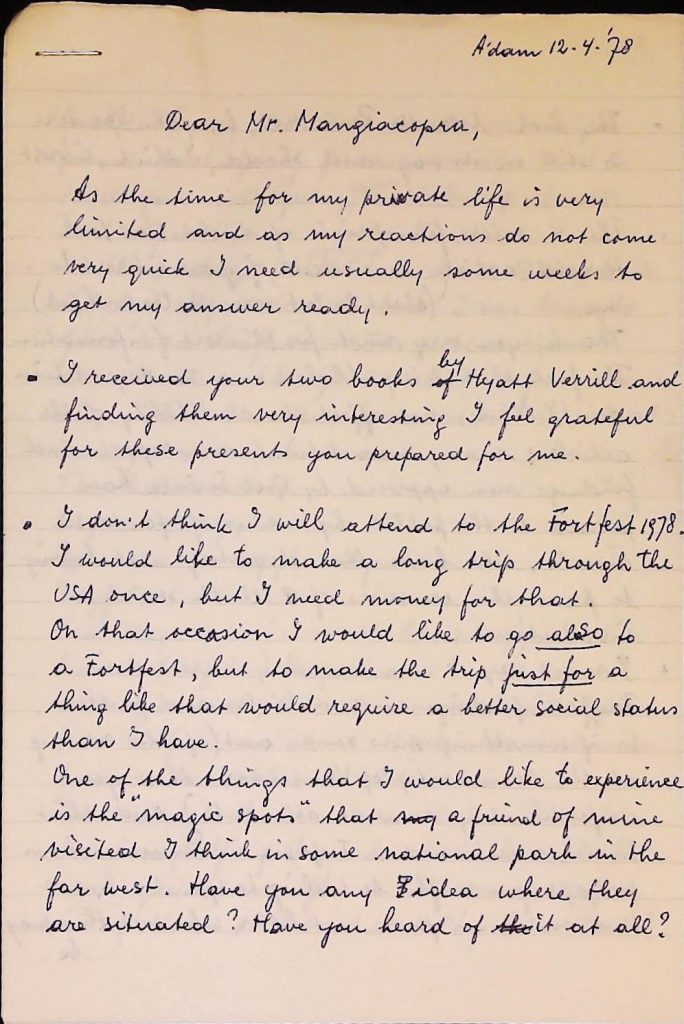 A'dam 12-4-'78
Dear Mr. Mangiacopra,
As the time for my private life is very
limited and as my reactions do not come
very quick I need usually some weeks to
get my answer ready.
• I received your two books of by Hyatt Verrill and
finding them very interesting I feel grateful
for these presents you prepared for me.
• I don't think I will attend to the Fortfest 1978.
I would like to make a long trip through the
USA once, but I need money for that.
On that occasion I would like to go also to
a Fortfest, but to make the trip just for a
thing like that would require a better social status
than I have.
One of the things that I would like to experience
is the "magic spots" that my a friend of mine
visited I think in some national park in the
far west. Have you any idea where they
are situated? Have you heard of the it at all?